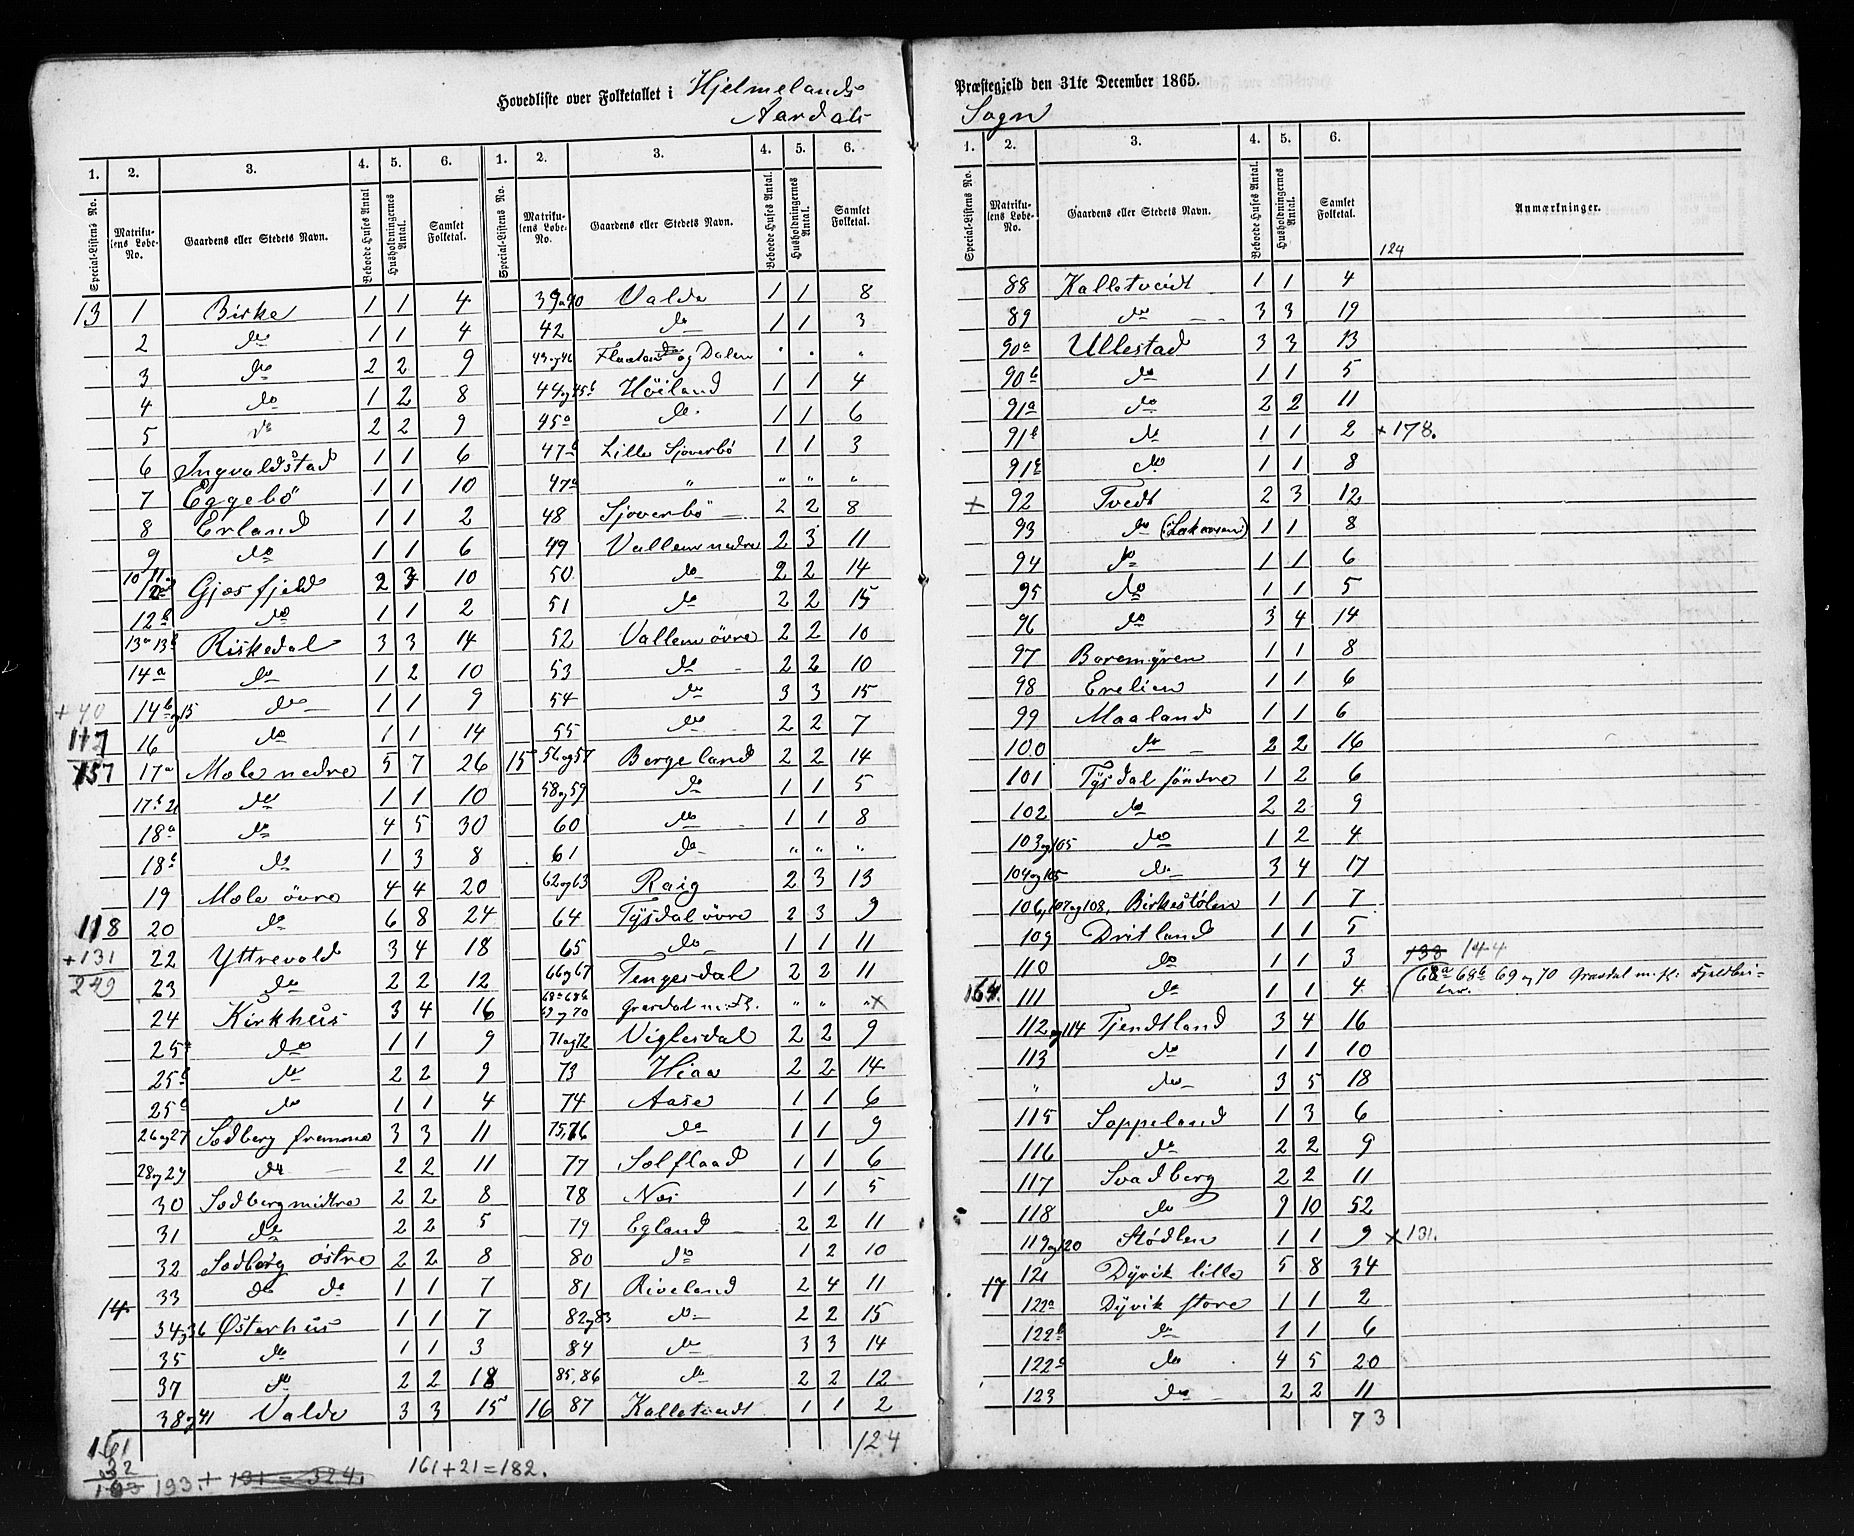 Hovedliste over Folketallet i Hjelmelands Præstegjeld den 31te December 1865.
Aardals Sogn
1. 2. 3. 4. 5. 6. 1. 2. 3. 4. 5. 6.
Special-Listens No. Matrikulens Løbe-No. Gaardens eller Stedets Navn. Beboede Huses Antal Husholdningernes Antal. Samlet Folketal. Special-Listens No. Matrikulens Løbe-No. Gaardens eller Stedets Navn. Beboede Huses Antal. Husholdningernes Antal. Samlet Folketal.
13 1 Birke 1 1 4
2 do 1 1 4
3 do 2 2 9
4 do 1 2 8
5 do 2 2 9
6 Ingvaldstad 1 1 6
7 Eggebö 1 1 10
8 Erland 1 1 2
9 do 1 1 6
10 11 og 12a Gjosfjeld 2 3 10
12b do 1 1 2
13a 13b Riskedal 3 3 14
14a do 1 2 10
+40 14b og 15 do 1 1 9
117 16 do 1 1 14
157 17a Mele nedre 5 7 26
17b do 1 1 10
18a do 4 5 30
18b do 1 3 8
19 Mele övre 4 4 20
118 20 do 6 8 24
+131 22 Yttrevold 3 4 18
249 23 do 2 2 12
24 Kirkhus 3 4 16
25a do 1 1 9
25b do 2 2 9
25c do 1 1 4
26 og 27 Sodberg fremme 3 3 11
28 og 29 do 2 2 11
30 Sodberg midtre 2 2 8
31 do 2 2 5
32 Sodberg östre 2 2 8
33 do do 1 1 7
14 34 og 36 Østerhus 1 1 7
35 do 1 1 3
37 do 2 2 18
38 og 41 Valde 3 3 15
161
32
193 193. + 131 = 324. 161 + 21 = 182.
39 og 40 Valde 1 1 8
42 do 1 1 3
43 og 46 og Dalen " " "
44 og 45b Höiland 1 1 4
45a do 1 1 6
47b Lille Sjoverbö 1 1 3
47a " " " "
48 Sjoverbö 2 2 8
49 Vallem nedre 2 3 11
50 do 2 2 14
51 do 2 2 15
52 Vallem övre 2 2 10
53 do 2 2 10
54 do 3 3 15
55 do 2 2 7
15 56 og 57 Bergeland 2 2 14
58 og 59 do 1 1 5
60 do 1 1 8
61 do " " "
62 og 63 Raig 2 3 13
64 Tysdal övre 2 3 9
65 do 1 1 11
66 og 67 Tengesdal 2 2 11
68a 68b 69 og 70 Gravdal m. fl. " " " x
71 og 72 Viglesdal 2 2 9
73 Hiaa 2 2 14
74 Aase 1 1 6
75, 76 do 1 1 9
77 Solflaad 1 1 6
78 Nes 1 1 5
79 Egland 2 2 11
80 do 1 2 10
81 Riveland 2 4 11
82 og 83 do 2 2 15
84 do 3 3 14
85, 86 do 2 2 12
16 87 Kalletvedt 1 1 2
124
1. 2. 3. 4. 5. 6.
Special-Listens No. Matrikulens Løbe-No. Gaardens eller Stedets Navn. Beboede Huses Antal. Husholdningernes Antal. Samlet Folketal. Anmærkninger.
124
88 Kalletveidt 1 1 4
89 do 3 3 19
90a Ullestad 3 3 13
90b do 1 1 5
91a do 2 2 11
91b do 1 1 2 +178.
91c do 1 1 8
x 92 Tvedt 2 3 12
93 do 1 1 8
94 do 1 1 6
95 do 1 1 5
96 do 3 4 14
97 Boremyren 1 1 8
98 Erelien 1 1 6
99 Maaland 1 1 6
100 do 2 2 16
101 Tysdal söndre 1 2 6
102 do 2 2 9
103 og 105 do 1 2 4
104 og 105 do 3 4 17
106, 107 og 108, Birkestölen 1 1 7
109 Dritland 1 1 5
110 do 1 1 3 133 144
164. 111 do 1 1 4 (68a 68b 69 og 70 Gravdal m. fl. Fjeldbeiter.
112 og 114 Tjendtland 3 4 16
113 do 1 1 10
" do 3 5 18
115 Soppeland 1 3 6
116 do 2 2 9
117 Svadberg 2 2 11
118 do 9 10 52
119 og 120 Stödlen 1 1 9 x131.
17 121 Dyvik lille 5 8 34
122a Dyvik store 1 1 2
122b do 1 1 6
122c do 4 5 20
123 do 2 2 11
73